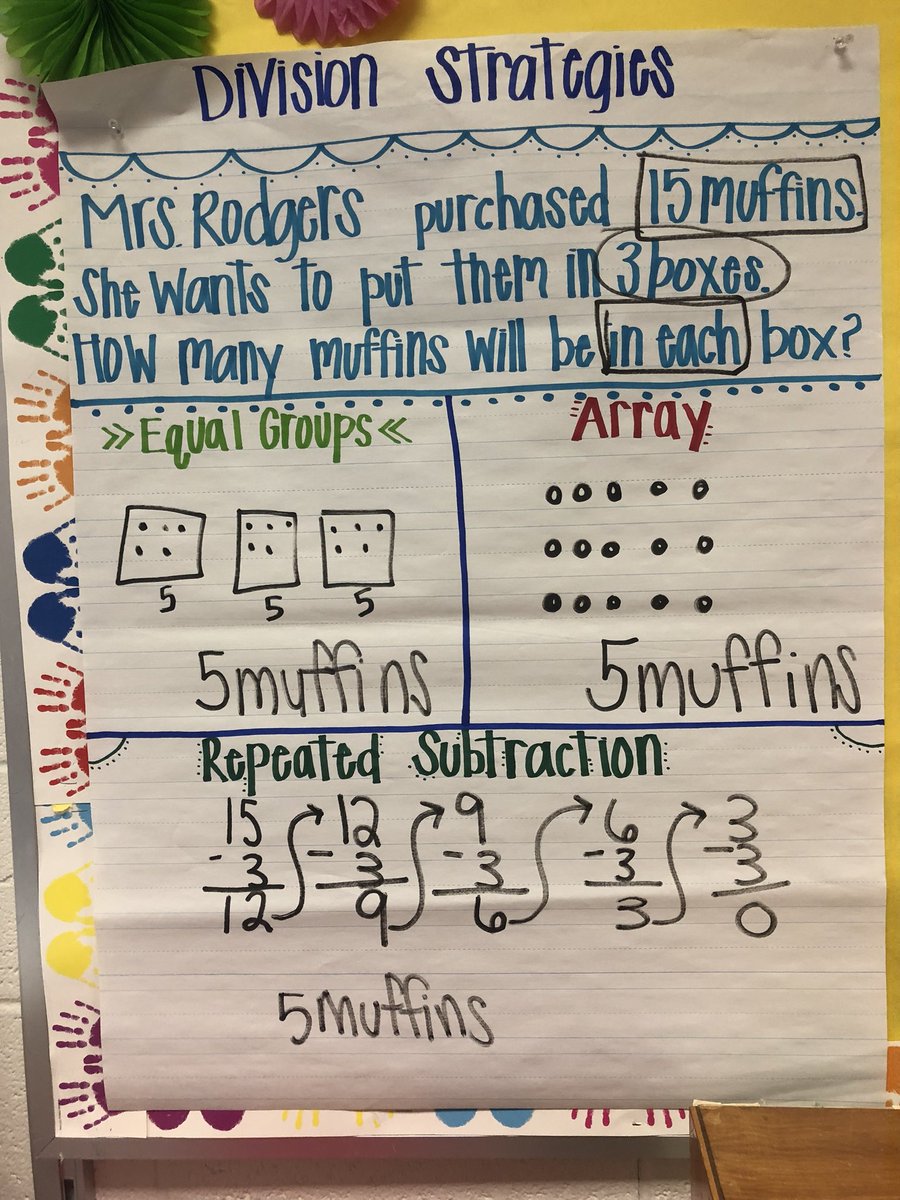 Division Strategies
Mrs. Rodgers purchased 15 muffins.
She wants to put them in 3 boxes.
How many muffins will be in each box?
>> Equal Groups <<
Array
5 5 5
5 muffins
5 muffins
Repeated Subtraction
15 12 9 6 3
- 3 - 3 - 3 - 3 - 3
12 9 6 3 0
5 muffins